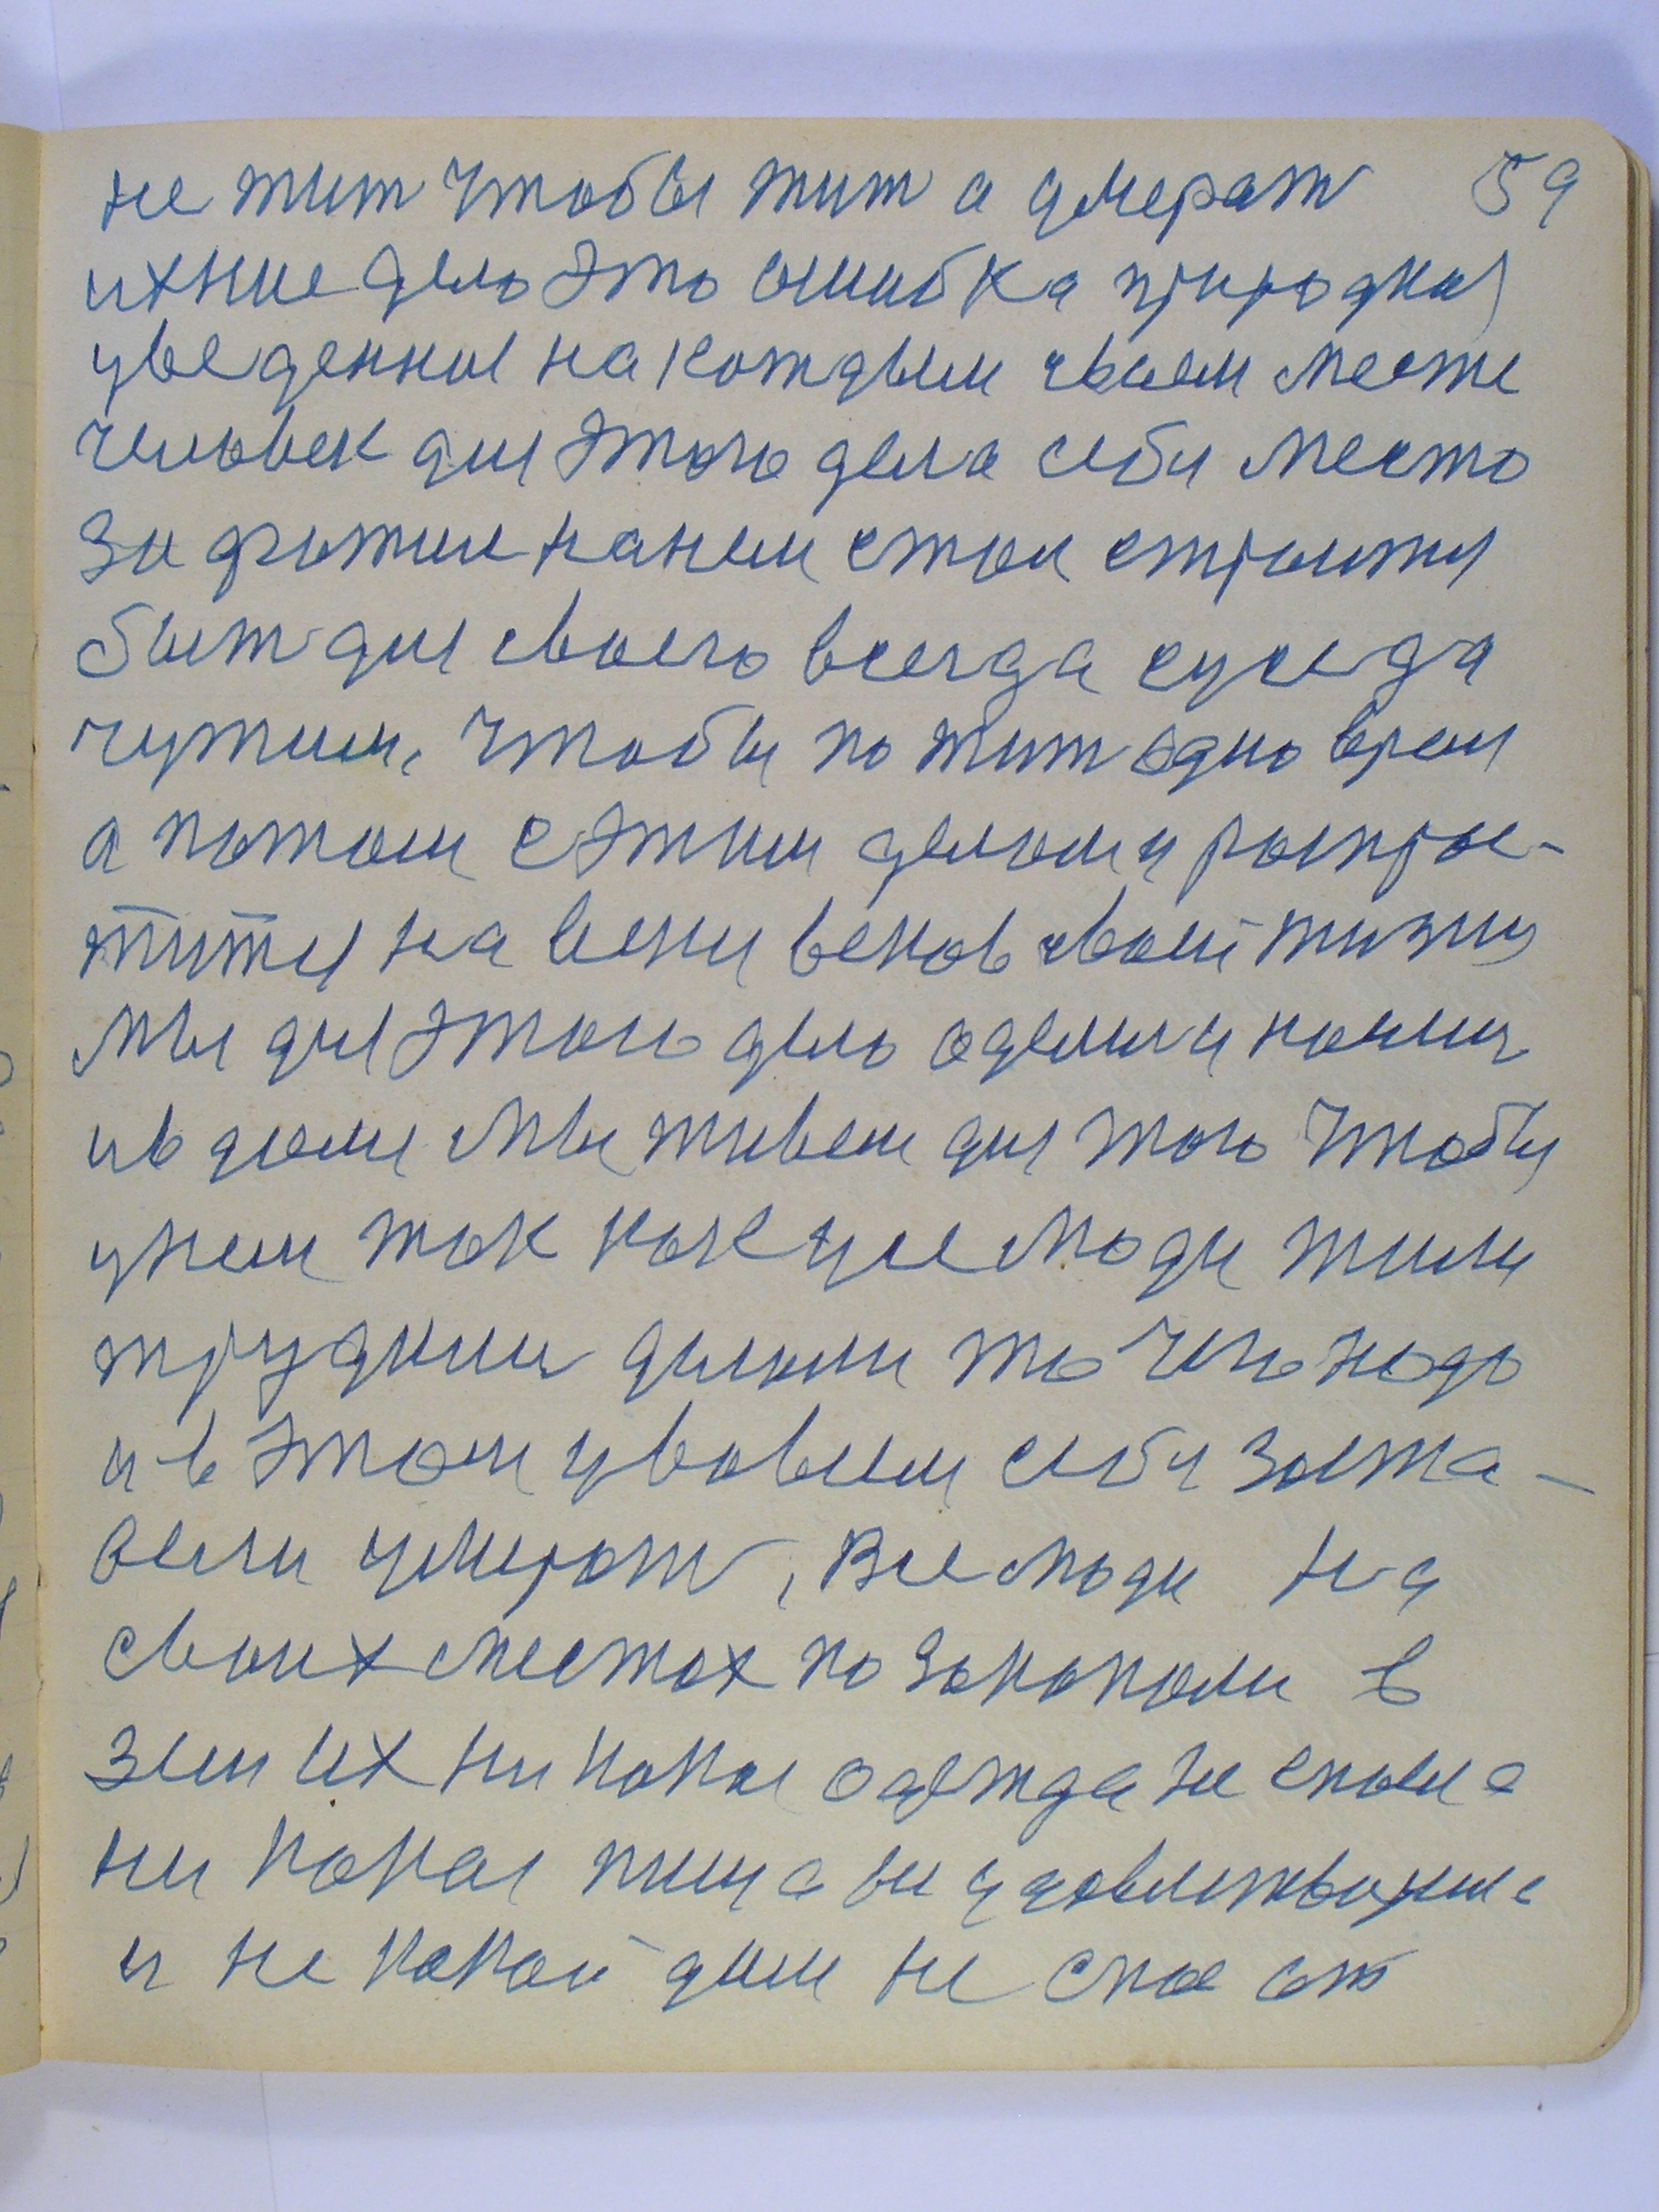 не жит чтобы жит а умерат 59
ихние дело это ошибка природная
уведенная на кождым своем месте
человек для этого дела себя место
за громил на нем стал строится
быт для своего всегда суседа
чужим, чтобы по жит одно время
а потом с этим делом и распрос-
титься на веки веков своей жизни
Мы для этого дело оделися начися
и в доме мы живем для того чтобы
у нем так как усе люди жили
трудими делали то чего надо
и в этом условим себя заста-
вели умерат, Все люди на
своих местах по закопали в
земи их ни какая одежда не спасла
ни какая пища не удовлетворила
и не какой дом не спас от